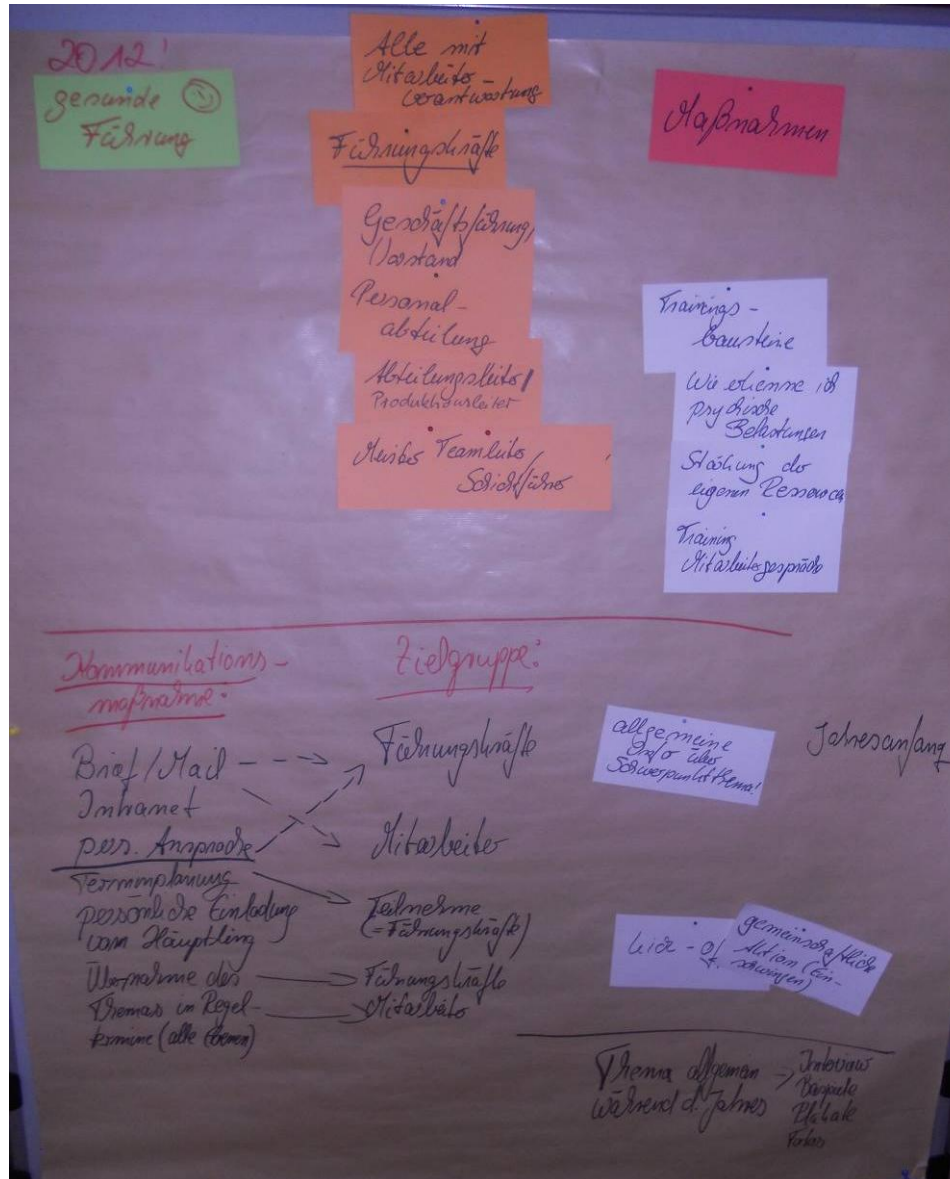 2012!
gesunde
Führung
Alle mit
Mitarbeiter-
verantwortung
Führungskräfte
Geschäftsführung,
Vorstand
Personal-
abteilung
Abteilungsleiter/
Produktionsleiter
Meister Teamleiter/
Schichtführer
Maßnahmen
Trainings-
bausteine
Wie erkenne ich
psychische
Belastungen
Stärkung der
eigenen Ressourcen
Training
Mitarbeitergespräche
Kommunikations-
maßnahme:
Brief/Mail
Intranet
pers. Ansprache
Terminplanung
persönliche Einladung
vom Häuptling
Übernahme des
Themas in Regel-
termine (alle Ebenen)
Zielgruppe:
Führungskräfte
Mitarbeiter
Teilnehmer
(= Führungskräfte)
Führungskräfte
Mitarbeiter
allgemeine
Info über
Schwerpunktthema!
Jahresanfang
kick-off
gemeinschaftliche
Aktion (Ein-
schwingen)
Thema allgemein
während d. Jahres
Interview
Beispiele
Plakate